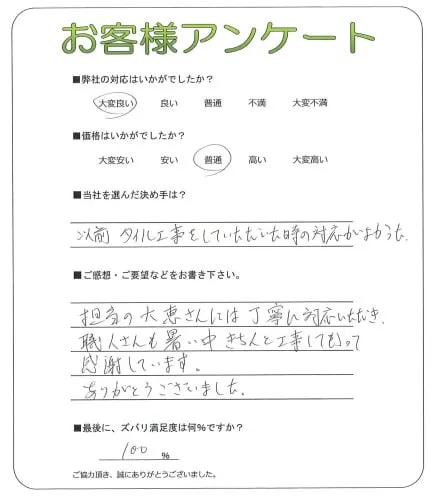 お客様アンケート
■弊社の対応はいかがでしたか？
大変良い 良い 普通 不満 大変不満
■価格はいかがでしたか？
大変安い 安い 普通 高い 大変高い
■当社を選んだ決め手は？
以前 タイル工事をしていただいた時の対応がよかった.
■ご感想・ご要望などをお書き下さい。
担当の大恵さんには丁寧に対応いただき.
職人さんも暑い中 きちんと工事してもらって
感謝しています。
ありがとうございました.
■最後に、ズバリ満足度は何%ですか？
100 %
ご協力頂き、誠にありがとうございました。